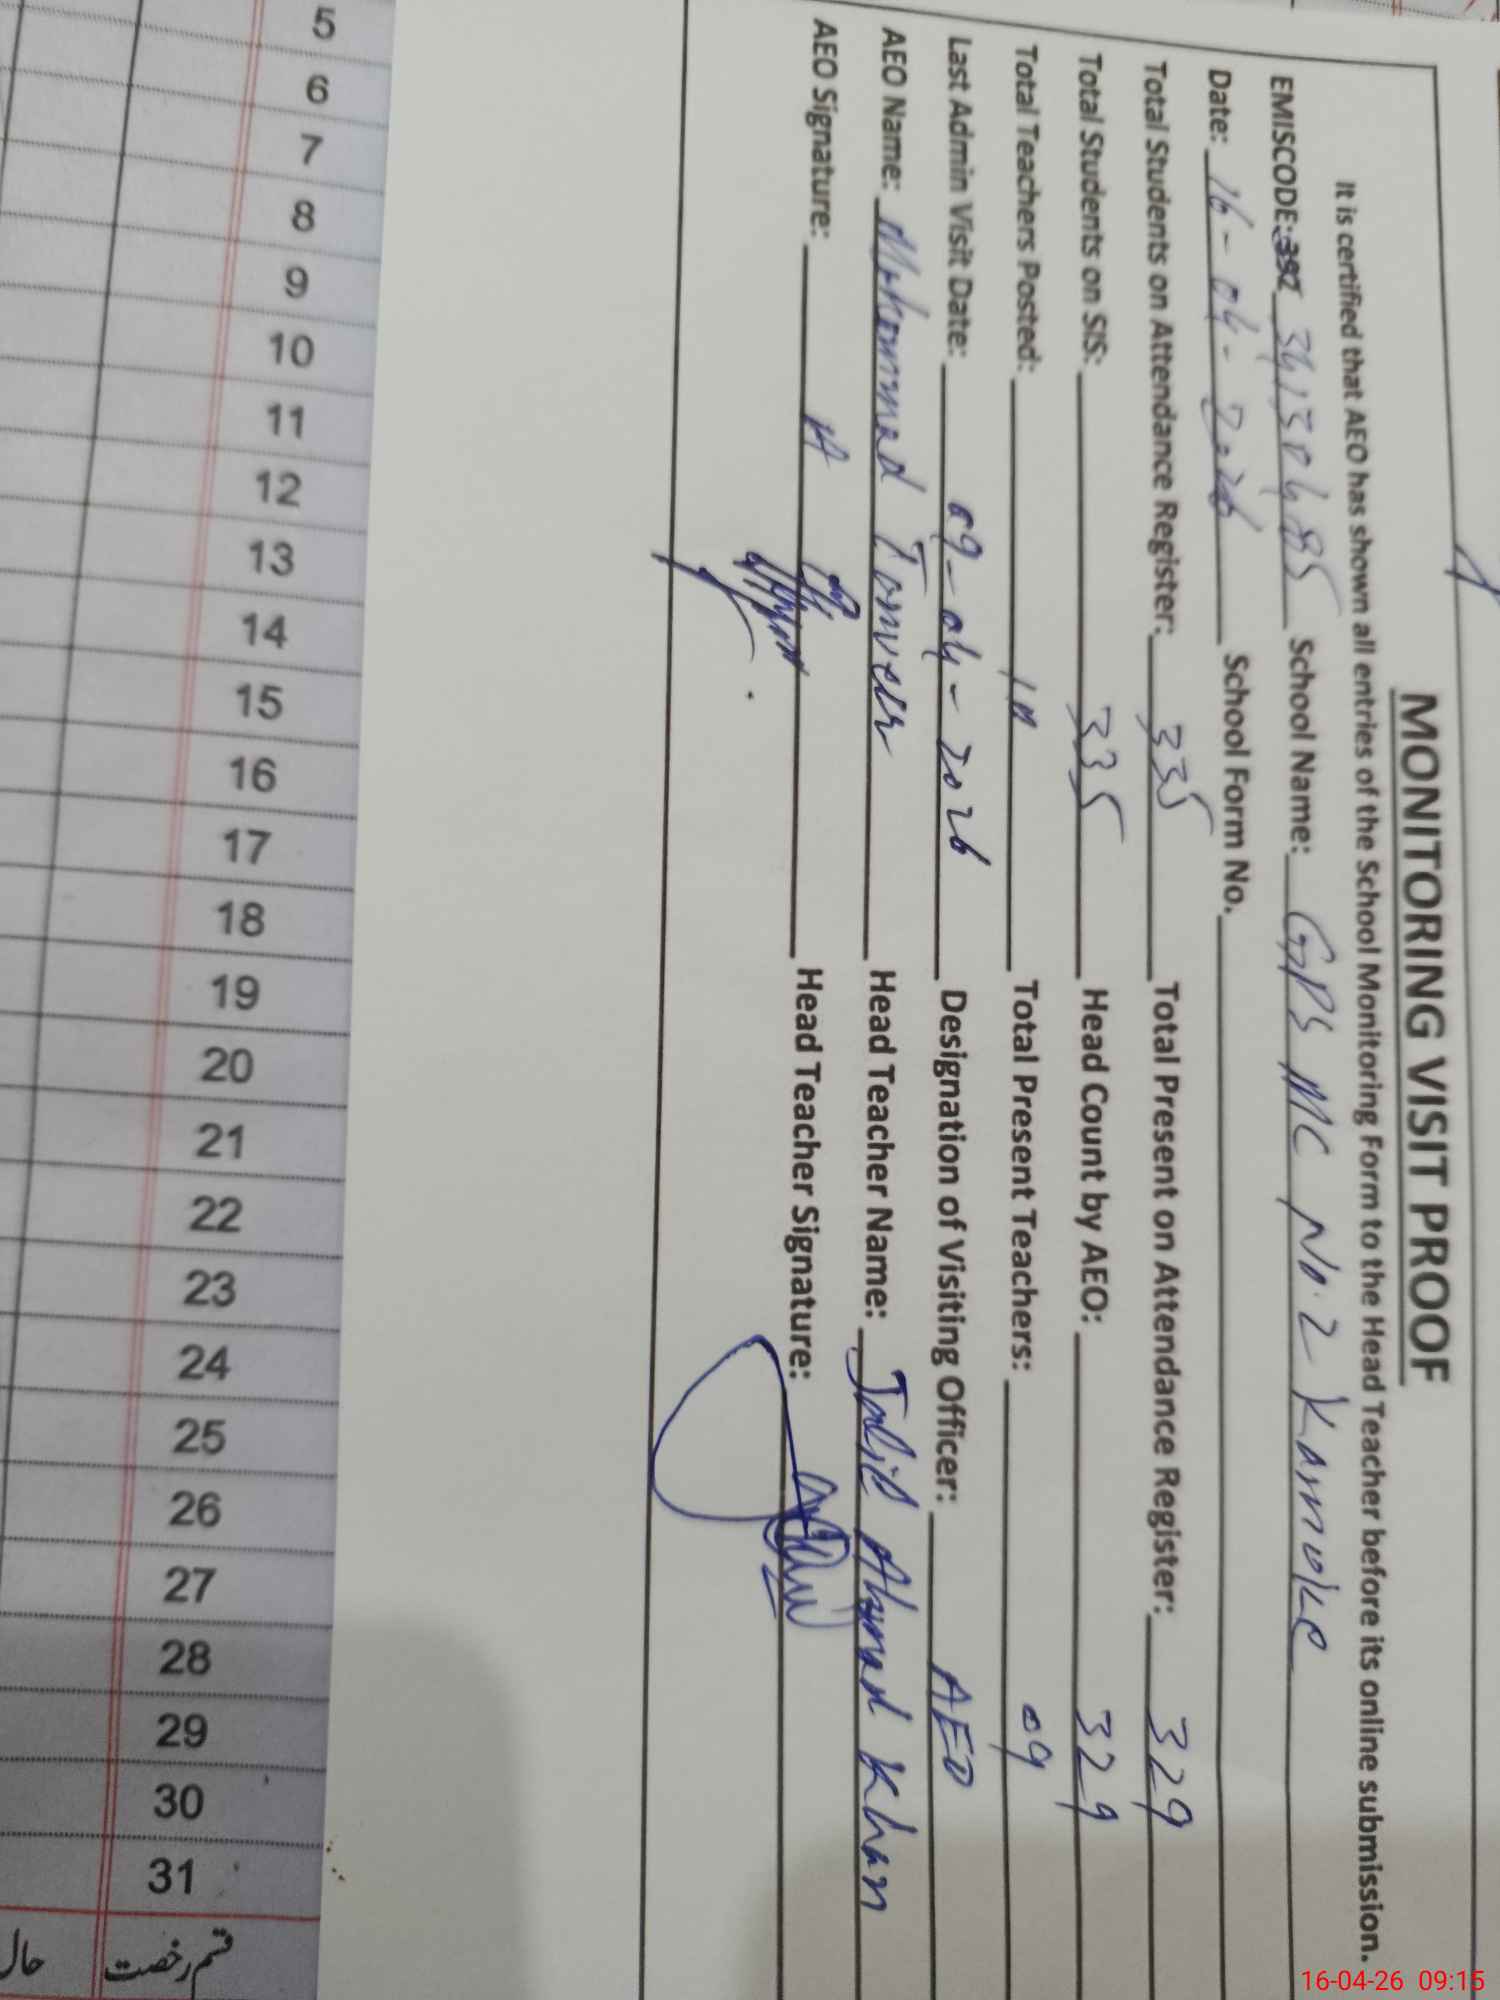 MONITORING VISIT PROOF
It is certified that AEO has shown all entries of the School Monitoring Form to the Head Teacher before its online submission.
EMISCODE: 34130485 School Name: GPS MC No. 2 Kamoke
Date: 16-04-2026 School Form No.
Total Students on Attendance Register: 335 Total Present on Attendance Register: 329
Total Students on SIS: 335 Head Count by AEO: 329
Total Teachers Posted: 10 Total Present Teachers: 09
Last Admin Visit Date: 09-04-2026 Designation of Visiting Officer: AEO
AEO Name: Mohammad Tanveer Head Teacher Name: Jalid Ahmad Khan
AEO Signature: Head Teacher Signature:
5
6
7
8
9
10
11
12
13
14
15
16
17
18
19
20
21
22
23
24
25
26
27
28
29
30
31
قسم رخصت
حال
16-04-26 09:15